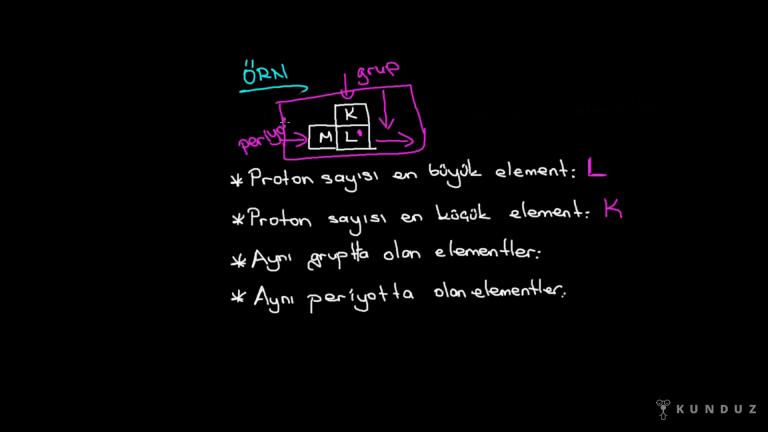 ÖRN
grup
K
periyot
M L
* Proton sayısı en büyük element: L
* Proton sayısı en küçük element: K
* Aynı grupta olan elementler:
* Aynı periyotta olan elementler:
KUNDUZ